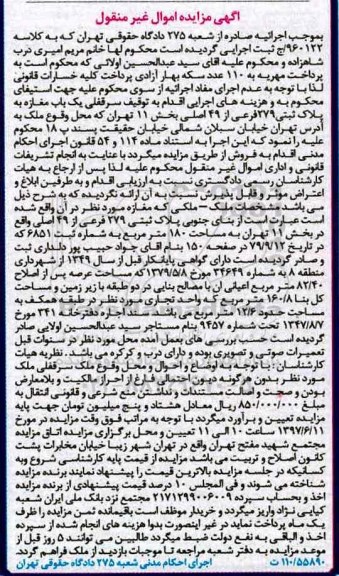 آگهی مزایده اموال غیر منقول
بموجب اجرائیه صادره از شعبه ۲۷۵ دادگاه حقوقی تهران که به کلاسه
۹۶۰۱۲۲/ج ثبت اجرایی گردیده است محکوم لها خانم مریم امیری درب
شاهزاده و محکوم علیه آقای سید عبدالحسین اولائی که محکوم است به
پرداخت مهریه به ۱۱۰ عدد سکه بهار آزادی پرداخت کلیه خسارات قانونی
لذا با توجه به عدم اجرای مفاد اجرائیه از سوی محکوم علیه جهت استیفای
محکوم به و هزینه های اجرایی اقدام به توقیف سرقفلی یک باب مغازه به
پلاک ثبتی ۲۷۹فرعی از ۴۹ اصلی بخش ۱۱ تهران که محل وقوع ملک به
آدرس تهران خیابان سبلان شمالی خیابان حقیقت پسند پ ۱۸ محکوم
علیه را نمود که این اجرا به استناد ماده ۱۱۴ و ۵۴ قانون اجرای احکام
مدنی اقدام به فروش از طریق مزایده میگردد با عنایت به انجام تشریفات
قانونی و اداری اموال غیر منقول محکوم علیه لذا پس از ارجاع به هیات
کارشناسان رسمی دادگستری نسبت به ارزیابی اقدام و به طرفین ابلاغ و
اعتراض موثر و قابل پذیرش نسبت به آن ارائه نگردیده که به شرح ذیل
می باشد مشخصات ملک – ملکی که مغازه مورد نظر در آن واقع شده
است عبارت است از بنای جنوبی پلاک ثبتی ۲۷۹ فرعی از ۴۹ اصلی واقع
در بخش ۱۱ تهران به مساحت ۱۸۰ متر مربع به شماره ثبت ۶۸۵۱ که
در تاریخ ۷۹/۹/۱۲ در صفحه ۱۵۰ بنام آقای جواد حبیب پور دلداری ثبت
و صادر گردیده است دارای گواهی پایانکار قبل از سال ۱۳۴۹ از شهرداری
منطقه ۸ به شماره ۳۴۶۴۹ مورخ ۱۳۷۹/۵/۸که مساحت عرصه پس از اصلاح
۸۲/۴۰ متر مربع اعیانی آن با مصالح بنایی در دو طبقه با زیر زمین و مساحت
کل بنا ۱۶۰/۸ متر مربع که واحد تجاری مورد نظر در طبقه همکف به
مساحت حدود ۱۲/۶ متر مربع می باشد سند اجاره دفترخانه ۳۴۱ مورخ
۱۳۴۷/۸/۷ تحت شماره ۹۴۵۷ بنام مستاجر سید عبدالحسین اولایی صادر
گردیده است حسب بررسی های بعمل آمده محل مورد نظر در سنوات قبل
تعمیرات صوتی و تصویری بوده و دارای برق و کرکره می باشد . نظریه هیات
کارشناسان : با توجه به اوضاع و احوال و محل وقوع ملک سرقفلی ملک
مورد نظر بدون هرگونه دیون احتمالی فارغ از احراز مالکیت و بلامعارض
بودن و صحت و اصالت مستندات و نداشتن منع شرعی و قانونی انتقال به
مبلغ ۸۵۰/۰۰۰/۰۰۰ ریال معادل هشتاد و پنج میلیون تومان جهت پایه
مزایده تعیین و برآورد میگردد با توجه به مراتب فوق وقت مزایده در مورخ
۱۳۹۷/۶/۱۱ ساعت ۱۰ الی ۱۱ تعیین و محل برگزاری مزایده اتاق مزایده
مجتمع شهید مفتح تهران واقع در تهران شهر زیبا خیابان مخابرات پشت
کانون اصلاح و تربیت می باشد مزایده از قیمت پایه کارشناسی شروع وبه
کسانیکه در جلسه مزایده بالاترین قیمت را پیشنهاد نمایند برنده مزایده
شناخته می شوند و فی المجلس ۱۰ درصد قیمت پیشنهادی از برنده مزایده
اخذ و بحساب سپرده ۲۱۷۱۲۹۹۰۰۶۰۰۹ مجتمع نزد بانک ملی ایران شعبه
کیایی نژاد واریز میگردد و خریدار موظف است باقیمانده ثمن مزایده را ظرف
یک ماه پرداخت نماید در غیر اینصورت بدوا هزینه های انجام شده از سپرده
اخذ و الباقی به نفع دولت ضبط میگردد طالبین می توانند ۵ روز قبل از
موعد مزایده به دفتر شعبه مراجعه تا موجبات بازدید از ملک فراهم گردد.
۱۱۰/۵۵۸۹۰ ت اجرای احکام مدنی شعبه ۲۷۵ دادگاه حقوقی تهران